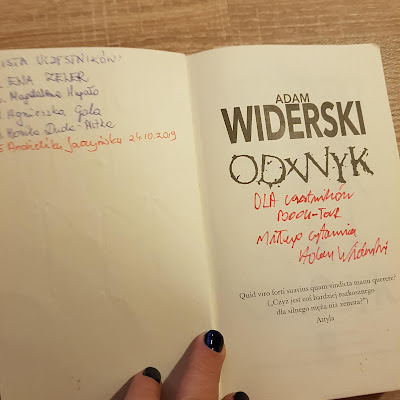 LISTA UCZESTNIKÓW:
EWA
Magdalena
Agnieszka Gala
Monika
5 Andżelika Jaczyńska 24.10.2019
ADAM
WIDERSKI
ODWYK
DLA uczestników
BOOK-Tour
Miłego czytania
Adam Widerski
Quid viro forti suavius quam vindicta manu querere?
(„Czyż jest coś bardziej rozkosznego
dla silnego męża niż zemsta?”)
Attyla